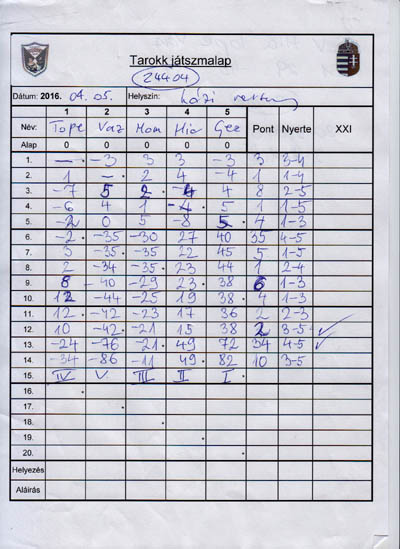 Tarokk játszmalap
24404
Dátum: 2016. 04. 05. Helyszín:
1 2 3 4 5
Név: Tope Vaz Hom Hio Gez Pont Nyerte XXI
Alap 0 0 0 0 0
1. — -3 3 3 -3 3 3-4
2. 1 — 2 4 -4 1 1-4
3. -7 5 2 -4 4 8 2-5
4. -6 4 1 -4 5 1 1-5
5. -2 0 5 -8 5 4 1-3
6. -2 -35 -30 27 40 35 4-5
7. 3 -35 -35 22 45 5 1-5
8. 2 -34 -35 23 44 1 2-4
9. 8 -40 -29 23 38 6 1-3
10. 12 -44 -25 19 38 4 1-3
11. 12 -42 -23 17 36 2 2-3
12. 10 -42 -21 15 38 2 3-5 ✓
13. -24 -76 -21 49 72 34 4-5 ✓
14. -34 -86 -11 49 82 10 3-5
15. IV V III II I
16.
17.
18.
19.
20.
Helyezés
Aláírás